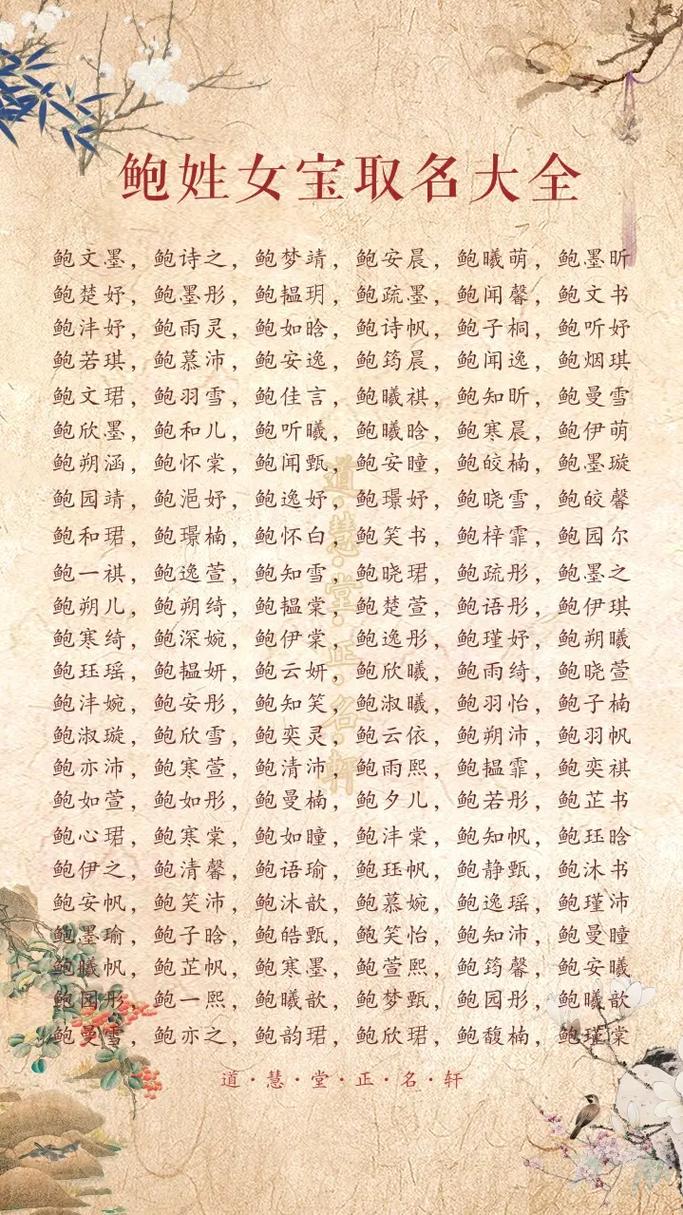 鲍姓女宝取名大全
鲍文墨，鲍诗之，鲍梦靖，鲍安晨，鲍曦萌，鲍墨昕
鲍楚妤，鲍墨彤，鲍韫玥，鲍疏墨，鲍闻馨，鲍文书
鲍沣妤，鲍雨灵，鲍如晗，鲍诗帆，鲍子桐，鲍听妤
鲍若琪，鲍慕沛，鲍安逸，鲍筠晨，鲍闻逸，鲍烟琪
鲍文珺，鲍羽雪，鲍佳言，鲍曦祺，鲍知昕，鲍曼雪
鲍欣墨，鲍和儿，鲍听曦，鲍曦晗，鲍寒晨，鲍伊萌
鲍朔涵，鲍怀棠，鲍闻甄，鲍安瞳，鲍皎楠，鲍墨璇
鲍园靖，鲍浥妤，鲍逸妤，鲍璟妤，鲍晓雪，鲍皎馨
鲍和珺，鲍璟楠，鲍怀白，鲍笑书，鲍梓霏，鲍园尔
鲍一祺，鲍逸萱，鲍知雪，鲍晓珺，鲍疏彤，鲍墨之
鲍朔儿，鲍朔绮，鲍韫棠，鲍楚萱，鲍语彤，鲍伊琪
鲍寒绮，鲍深婉，鲍伊棠，鲍逸彤，鲍瑾妤，鲍朔曦
鲍珏瑶，鲍韫妍，鲍云妍，鲍欣曦，鲍雨绮，鲍晓萱
鲍沣婉，鲍安彤，鲍知笑，鲍淑曦，鲍羽怡，鲍子楠
鲍淑璇，鲍欣雪，鲍奕灵，鲍云依，鲍朔沛，鲍羽帆
鲍亦沛，鲍寒萱，鲍清沛，鲍雨熙，鲍韫霏，鲍奕祺
鲍如萱，鲍如彤，鲍曼楠，鲍夕儿，鲍若彤，鲍芷书
鲍心珺，鲍寒棠，鲍如瞳，鲍沣棠，鲍知帆，鲍珏晗
鲍伊之，鲍清馨，鲍语瑜，鲍珏帆，鲍静甄，鲍沐书
鲍安帆，鲍笑沛，鲍沐歆，鲍慕婉，鲍逸瑶，鲍瑾沛
鲍墨瑜，鲍子晗，鲍皓甄，鲍笑怡，鲍知沛，鲍曼瞳
鲍曦帆，鲍芷帆，鲍寒墨，鲍萱熙，鲍筠馨，鲍安曦
鲍园彤，鲍一熙，鲍曦歆，鲍梦甄，鲍园彤，鲍曦歆
鲍曼雪，鲍亦之，鲍韵珺，鲍欣珺，鲍馥楠，鲍瑾棠
道·慧·堂·正·名·轩
道·慧·堂·正·名·轩